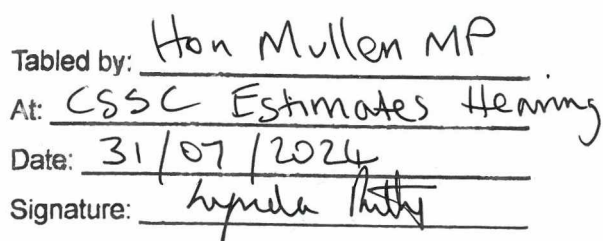 Tabled by: Hon Mullen MP
At: CSSC Estimates Hearing
Date: 31/07/2024
Signature: Lynda